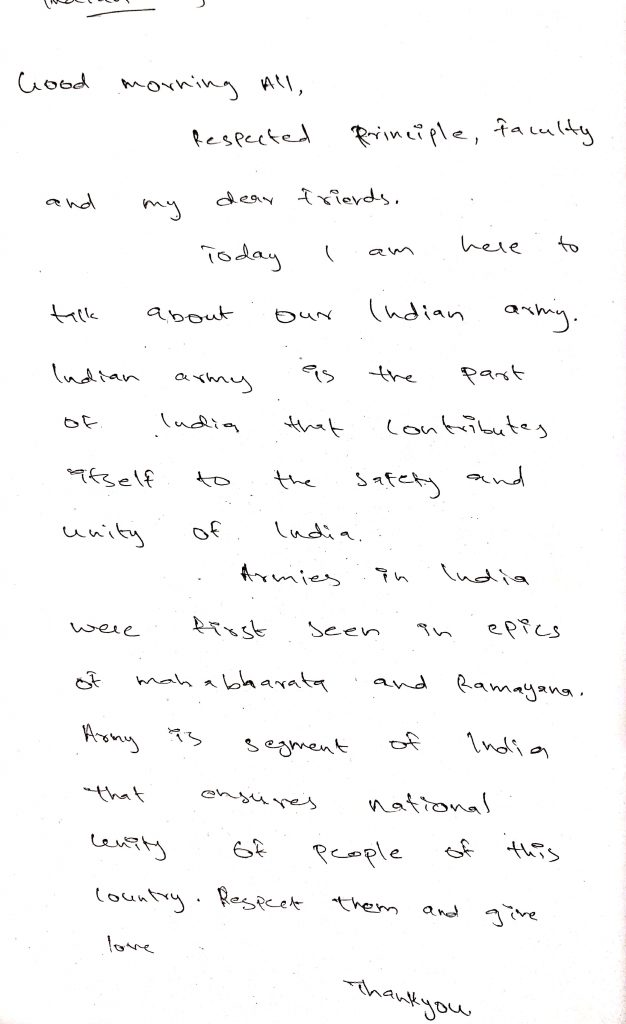 Good morning All,
Respected Principle, faculty
and my dear friends.
Today I am here to
talk about our Indian army.
Indian army is the part
of India that contributes
itself to the safety and
unity of India.
Armies in India
were first seen in epics
of mahabharata and Ramayana.
Army is segment of India
that ensures national
unity of people of this
country. Respect them and give
love
Thankyou